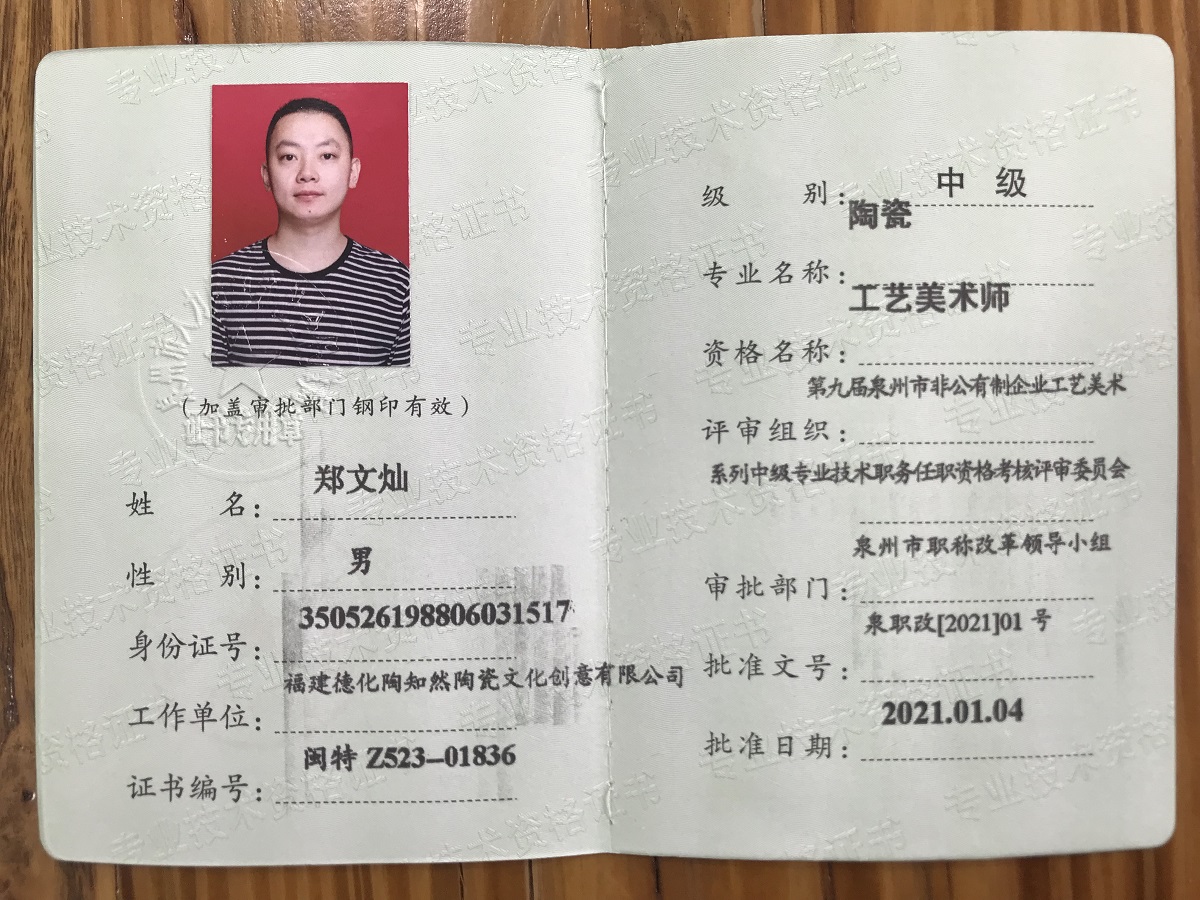 （加盖审批部门钢印有效）
证书专用章
姓 名： 郑文灿
性 别： 男
身份证号： 350526198806031517
工作单位： 福建德化陶知然陶瓷文化创意有限公司
证书编号： 闽特 Z523-01836
级 别： 中 级
专业名称： 陶瓷
资格名称： 工艺美术师
评审组织： 第九届泉州市非公有制企业工艺美术
系列中级专业技术职务任职资格考核评审委员会
审批部门： 泉州市职称改革领导小组
批准文号： 泉职改[2021]01 号
批准日期： 2021.01.04
专业技术资格证书